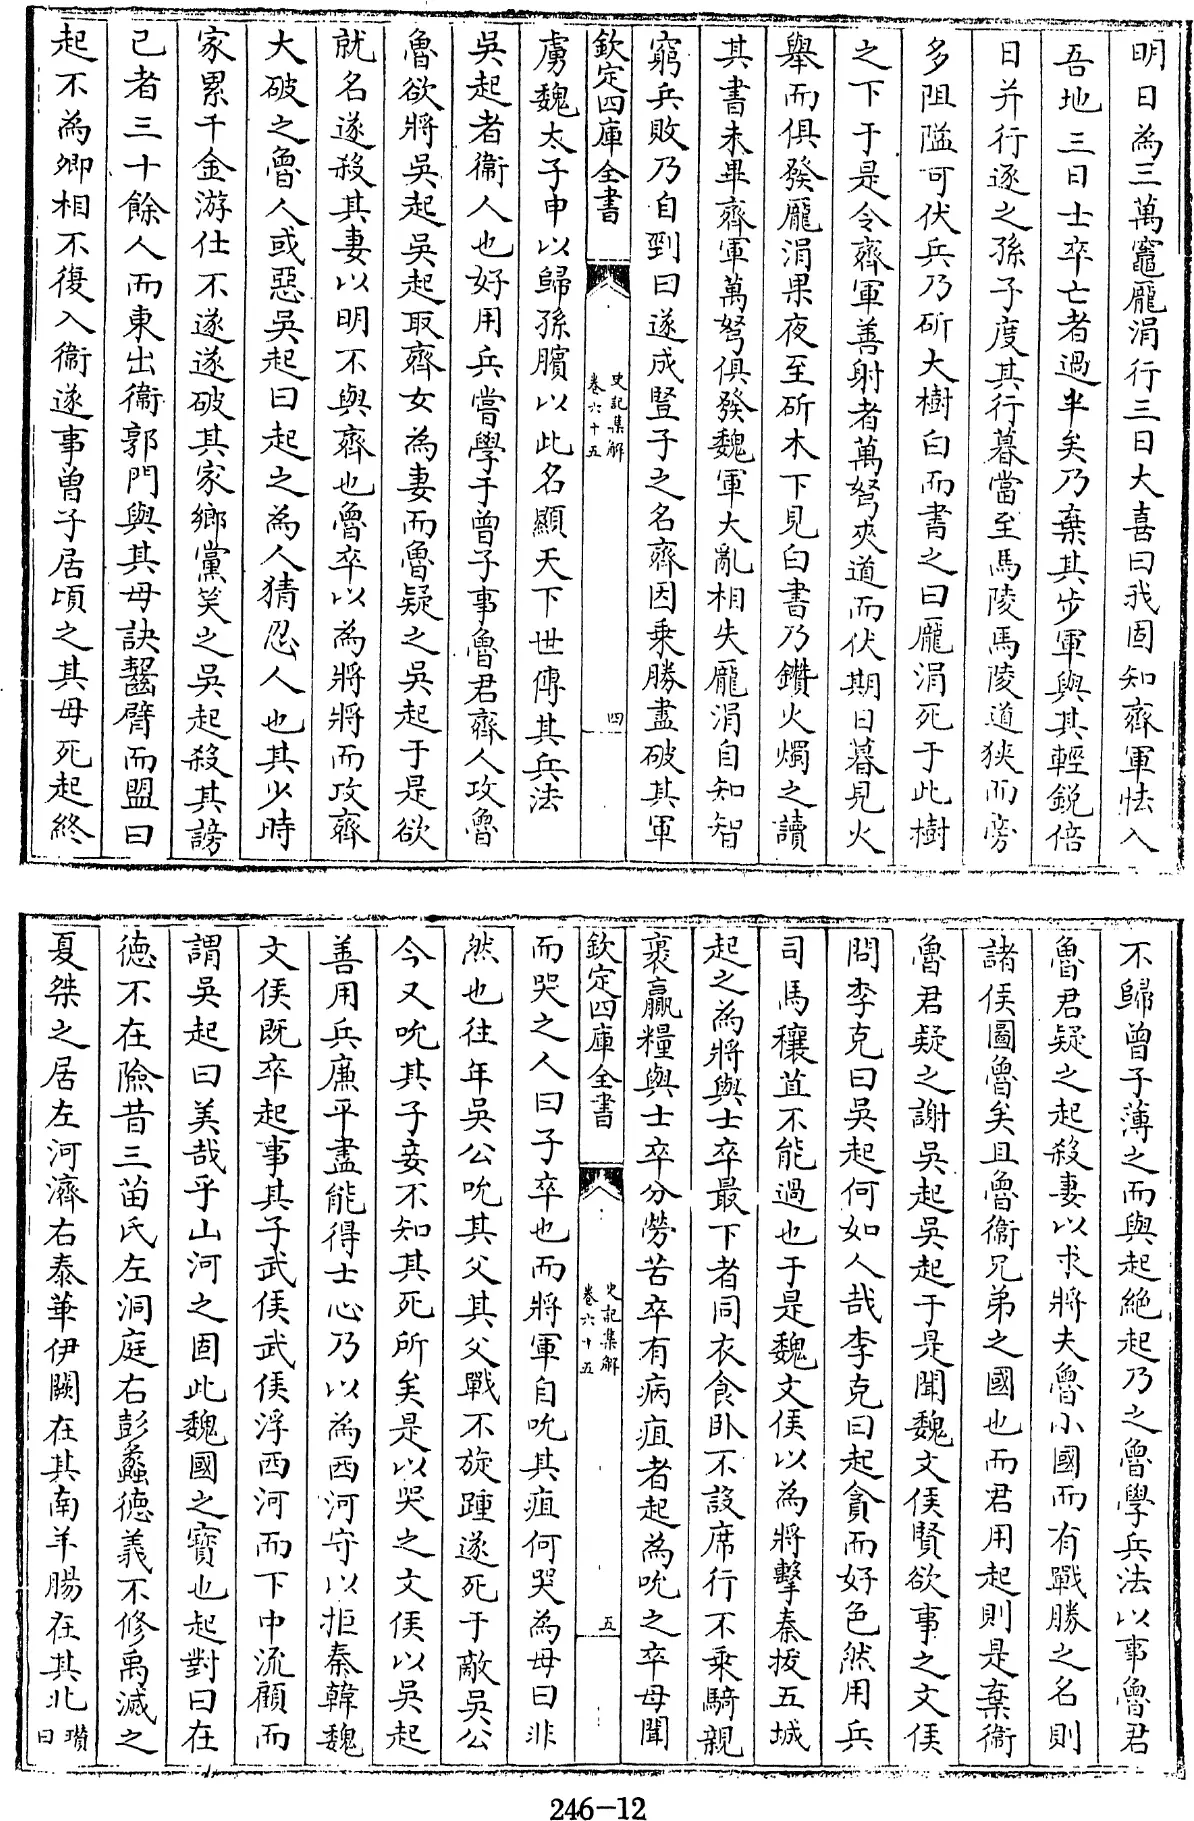 明日為三萬竈龐涓行三日大喜曰我固知齊軍怯入
吾地三日士卒亡者過半矣乃棄其步軍與其輕銳倍
日并行逐之孫子度其行暮當至馬陵馬陵道狹而旁
多阻隘可伏兵乃斫大樹白而書之曰龐涓死于此樹
之下于是令齊軍善射者萬弩夾道而伏期日暮見火
舉而俱發龐涓果夜至斫木下見白書乃鑽火燭之讀
其書未畢齊軍萬弩俱發魏軍大亂相失龐涓自知智
窮兵敗乃自剄曰遂成豎子之名齊因乗勝盡破其軍
欽定四庫全書
史記集解
卷六十五
四
虜魏太子申以歸孫臏以此名顯天下世傳其兵法
吳起者衞人也好用兵嘗學于曾子事魯君齊人攻魯
魯欲將吳起吳起取齊女為妻而魯疑之吳起于是欲
就名遂殺其妻以明不與齊也魯卒以為將將而攻齊
大破之魯人或惡吳起曰起之為人猜忍人也其少時
家累千金游仕不遂遂破其家鄉黨笑之吳起殺其謗
己者三十餘人而東出衞郭門與其母訣齧臂而盟曰
起不為卿相不復入衞遂事曾子居頃之其母死起終
不歸曾子薄之而與起絶起乃之魯學兵法以事魯君
魯君疑之起殺妻以求將夫魯小國而有戰勝之名則
諸侯圖魯矣且魯衞兄弟之國也而君用起則是棄衞
魯君疑之謝吳起吳起于是聞魏文侯賢欲事之文侯
問李克曰吳起何如人哉李克曰起貪而好色然用兵
司馬穰苴不能過也于是魏文侯以為將擊秦拔五城
起之為將與士卒最下者同衣食卧不設席行不乗騎親
裹贏糧與士卒分勞苦卒有病疽者起為吮之卒母聞
欽定四庫全書
史記集解
卷六十五
五
而哭之人曰子卒也而將軍自吮其疽何哭為母曰非
然也往年吳公吮其父其父戰不旋踵遂死于敵吳公
今又吮其子妾不知其死所矣是以哭之文侯以吳起
善用兵廉平盡能得士心乃以為西河守以拒秦韓魏
文侯既卒起事其子武侯武侯浮西河而下中流顧而
謂吳起曰美哉乎山河之固此魏國之寶也起對曰在
德不在險昔三苗氏左洞庭右彭蠡德義不修禹滅之
夏桀之居左河濟右泰華伊闕在其南羊腸在其北瓚曰
246-12